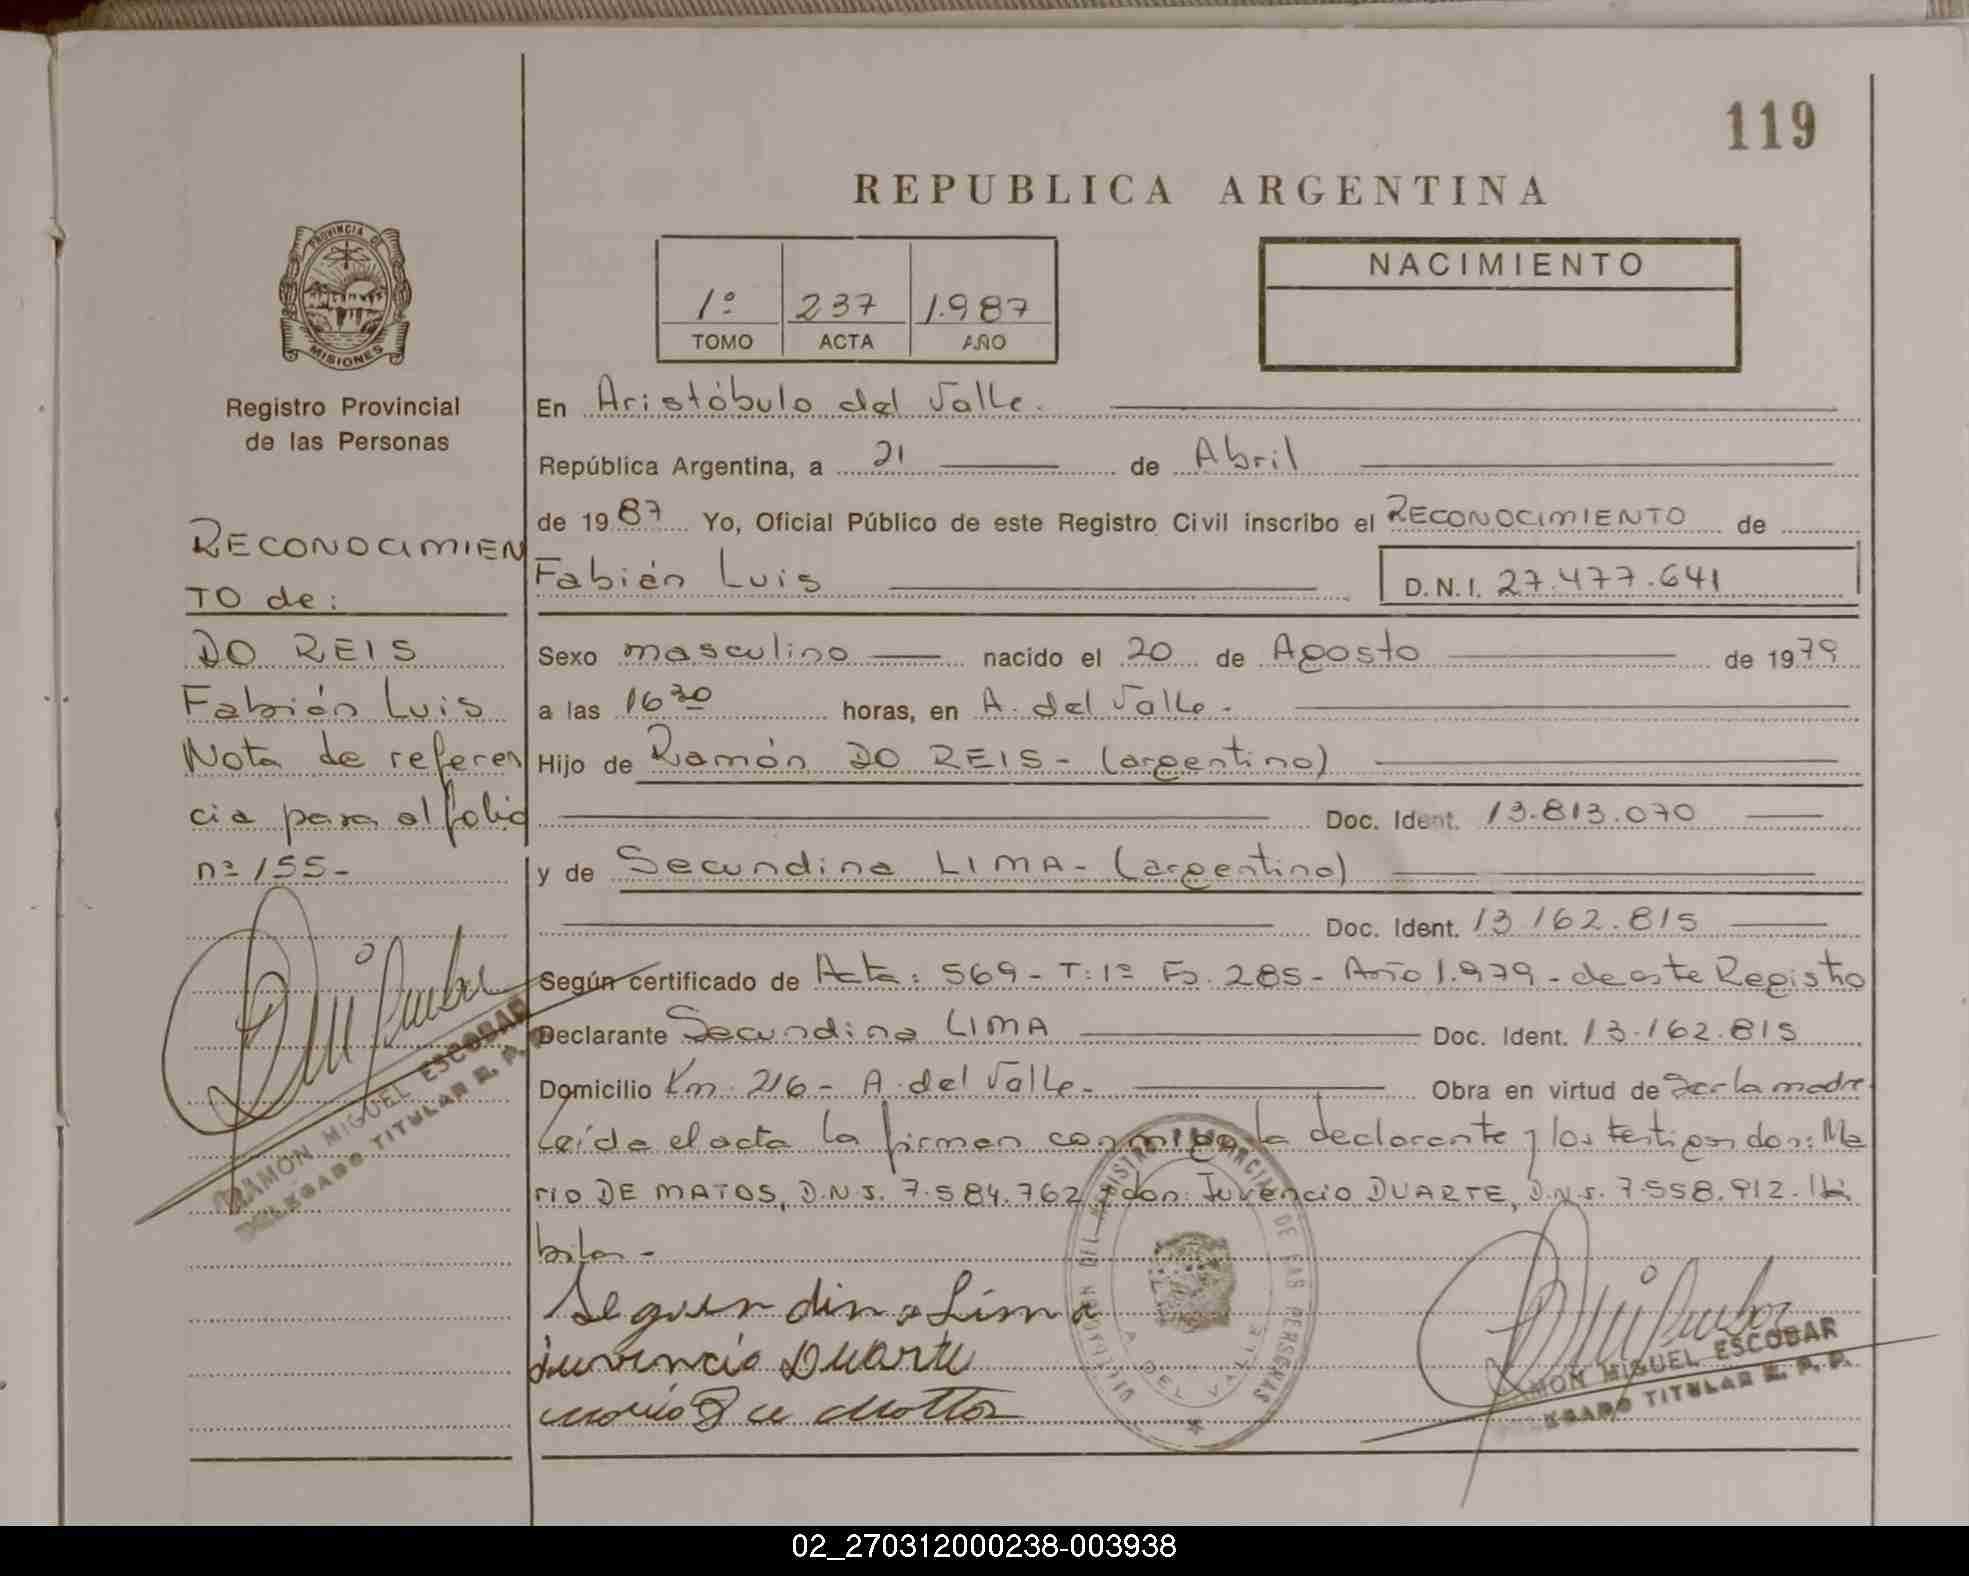 119
REPUBLICA ARGENTINA
PROVINCIA DE
MISIONES
Registro Provincial
de las Personas
1º 237 1.987
TOMO ACTA AÑO
NACIMIENTO
RECONOCIMIEN
TO de:
DO REIS
Fabián Luis
Nota de referen
cia para al folio
nº 155-
RAMÓN MIGUEL ESCOBAR
DELEGADO TITULAR R. P. P.
En Aristóbulo del Valle.
República Argentina, a 21 de Abril
de 1987 Yo, Oficial Público de este Registro Civil inscribo el RECONOCIMIENTO de
Fabián Luis D.N.I. 27.477.641
Sexo masculino nacido el 20 de Agosto de 1979
a las 16 30 horas, en A. del Valle.
Hijo de Ramón DO REIS - (argentino)
Doc. Ident. 13.813.070
y de Secundina LIMA - (argentina)
Doc. Ident. 13.162.815
Según certificado de Acta: 569 - T: 1º Fº. 285 - Año 1.979 - de este Registro
Declarante Secundina LIMA Doc. Ident. 13.162.815
Domicilio Km. 216 - A. del Valle - Obra en virtud de Ser la madre
Leída el acta la firman conmigo la declarante y los testigos don: Ma
rio DE MATOS, D.N.I. 7.584.762 y don: Juvencio DUARTE, D.N.I. 7.558.912. Há
biles -
Segundina Lima
Juvencio Duarte
DEL REGISTRO PROVINCIAL DE LAS PERSONAS
A. DEL VALLE
RAMON MIGUEL ESCOBAR
DELEGADO TITULAR R. P. P.
02_270312000238-003938